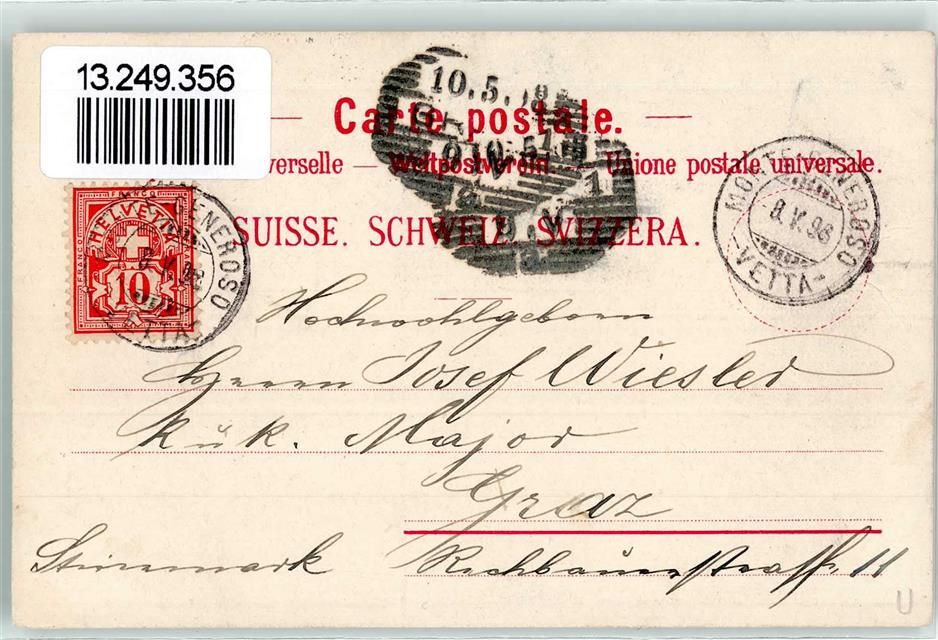 13.249.356
Carte postale.
verselle — Weltpostverein. — Unione postale universale.
SUISSE. SCHWEIZ. SVIZZERA.
10.5.98
FRANCO
HELVETIA
10
GENEROSO
VETTA
MONTE GENEROSO
8.V.98
-VETTA-
Hochwohlgeborn
Herrn Josef Wiesler
k u k. Major
Graz
Steiermark Rechbauerstraße 11
U